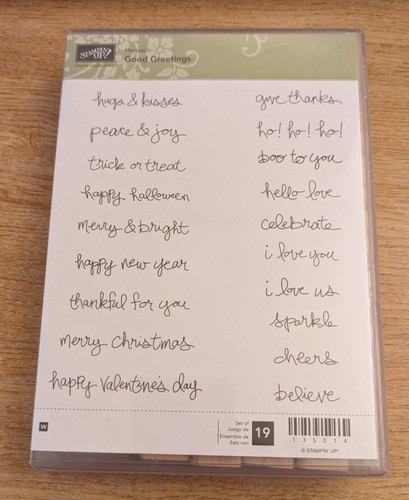 STAMPIN' UP!
Hostess
Good Greetings
hugs & kisses
peace & joy
trick or treat
happy halloween
merry & bright
happy new year
thankful for you
merry christmas
happy valentine's day
give thanks
ho! ho! ho!
boo to you
hello love
celebrate
i love you
i love us
sparkle
cheers
believe
W
Set of
Juego de
Ensemble de
Satz von
19
135014
© STAMPIN' UP!